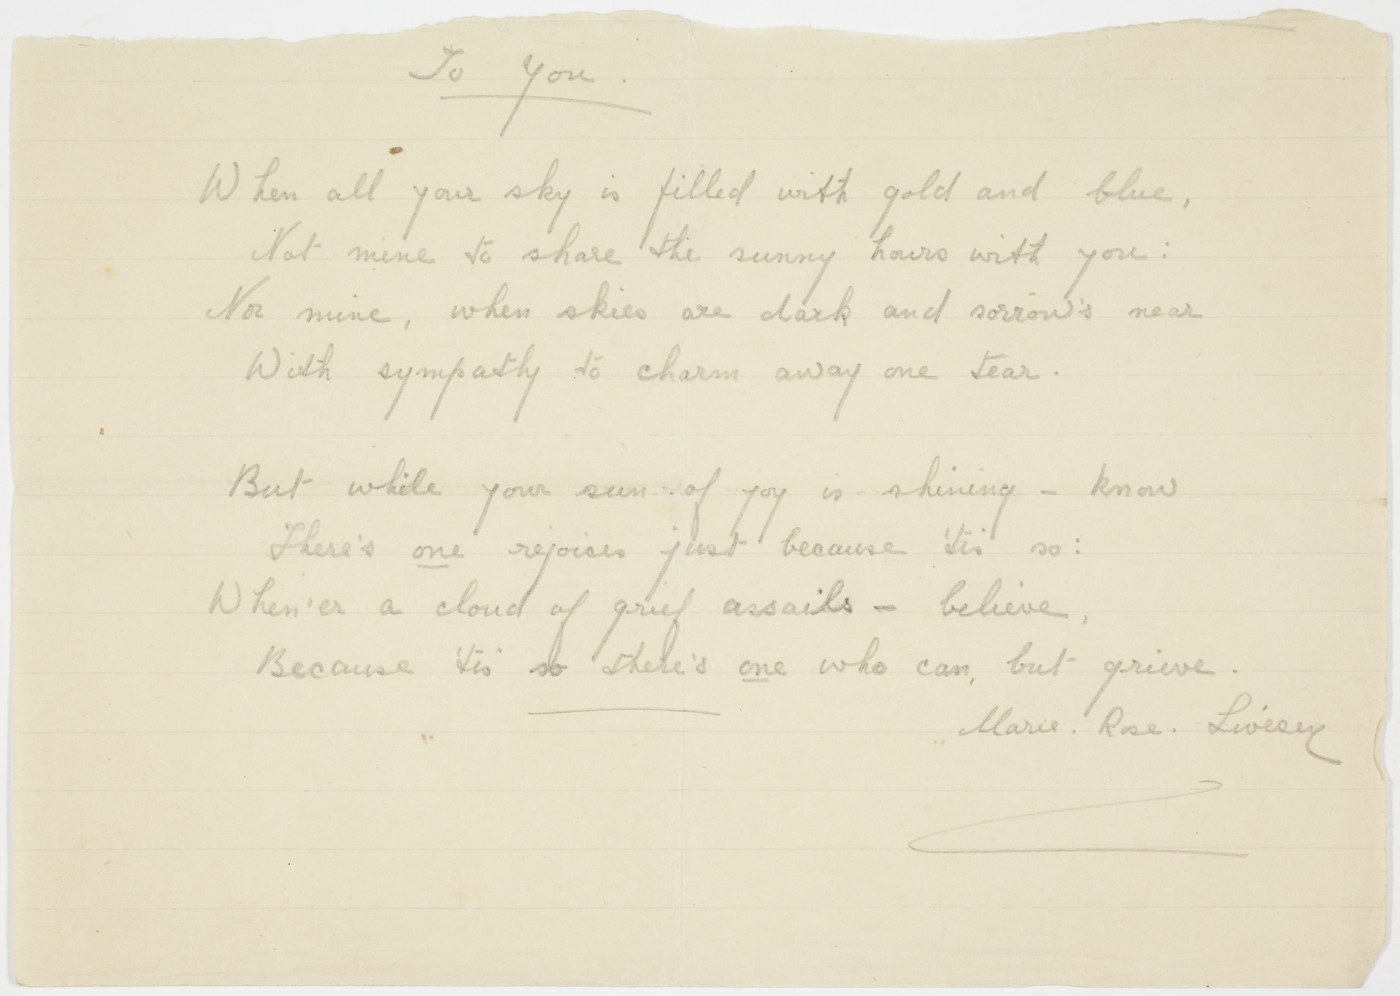 To You.
When all your sky is filled with gold and blue,
Not mine to share the sunny hours with you:
Nor mine, when skies are dark and sorrow's near
With sympathy to charm away one tear.
But while your sun of joy is shining - know
There's one rejoices just because 'tis so:
When'er a cloud of grief assails - believe,
Because 'tis so there's one who can but grieve.
Marie. Rose. Livesey